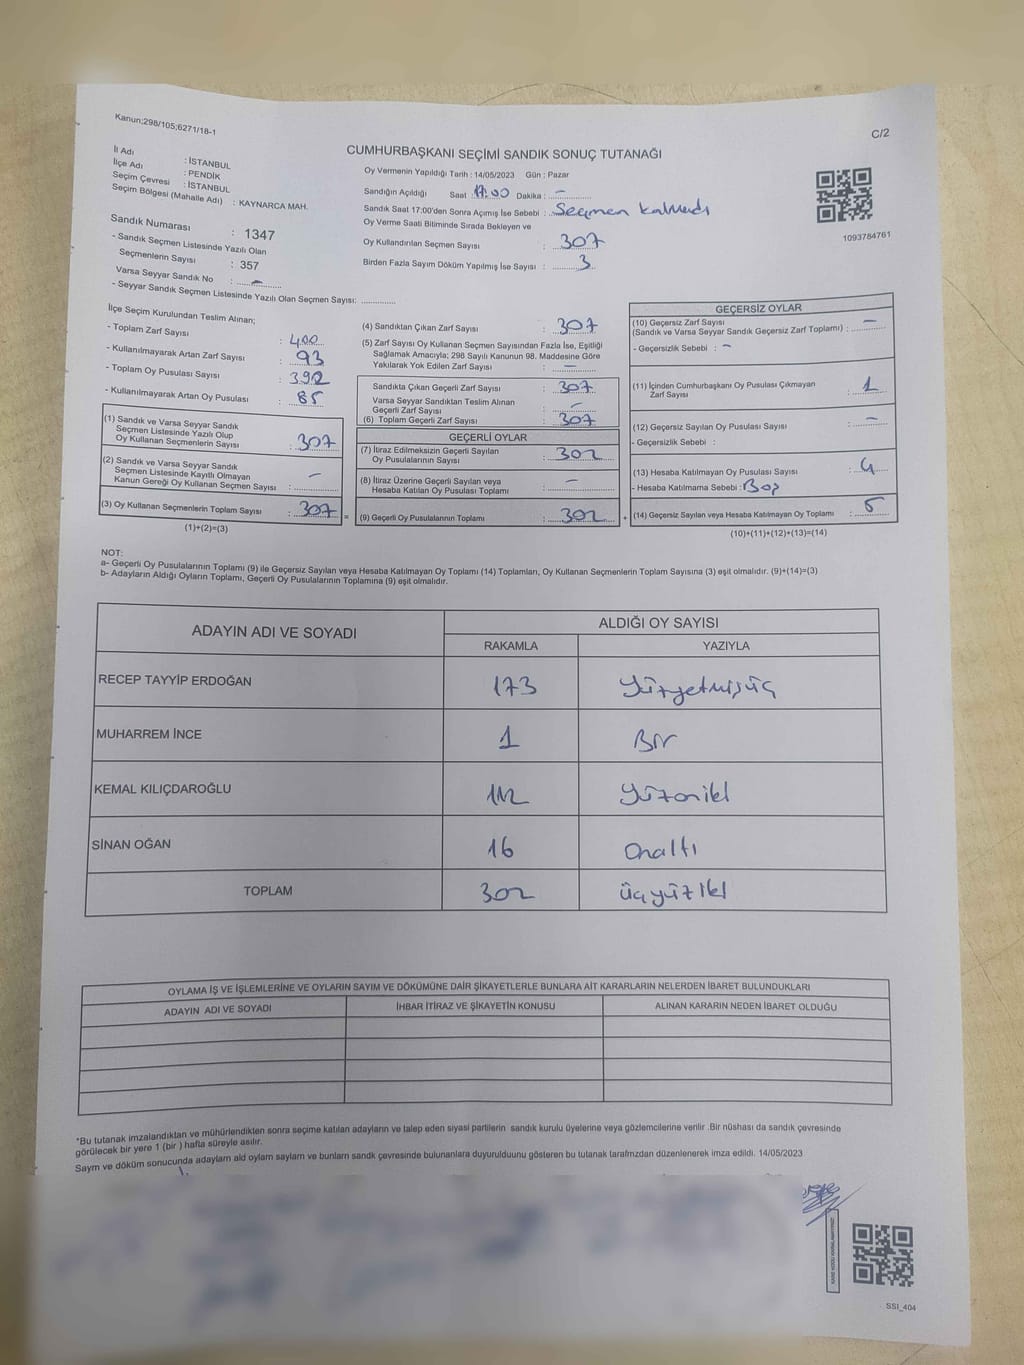 Kanun;298/105;6271/18-1
C/2
CUMHURBAŞKANI SEÇİMİ SANDIK SONUÇ TUTANAĞI
İl Adı : İSTANBUL
İlçe Adı : PENDİK
Seçim Çevresi : İSTANBUL
Seçim Bölgesi (Mahalle Adı) : KAYNARCA MAH.
Sandık Numarası : 1347
- Sandık Seçmen Listesinde Yazılı Olan
Seçmenlerin Sayısı : 357
Varsa Seyyar Sandık No : —
- Seyyar Sandık Seçmen Listesinde Yazılı Olan Seçmen Sayısı: ............
Oy Vermenin Yapıldığı Tarih : 14/05/2023 Gün : Pazar
Sandığın Açıldığı Saat : 17.00 Dakika : —
Sandık Saat 17:00'den Sonra Açımış İse Sebebi : Seçmen kalmadı
Oy Verme Saati Bitiminde Sırada Bekleyen ve
Oy Kullandırılan Seçmen Sayısı : 307
Birden Fazla Sayım Döküm Yapılmış İse Sayısı : 3
1093784761
İlçe Seçim Kurulundan Teslim Alınan;
- Toplam Zarf Sayısı : 400
- Kullanılmayarak Artan Zarf Sayısı : 93
- Toplam Oy Pusulası Sayısı : 392
- Kullanılmayarak Artan Oy Pusulası : 85
(1) Sandık ve Varsa Seyyar Sandık
Seçmen Listesinde Yazılı Olup
Oy Kullanan Seçmenlerin Sayısı : 307
(2) Sandık ve Varsa Seyyar Sandık
Seçmen Listesinde Kayıtlı Olmayan
Kanun Gereği Oy Kullanan Seçmen Sayısı : —
(3) Oy Kullanan Seçmenlerin Toplam Sayısı : 307 =
(1)+(2)=(3)
(4) Sandıktan Çıkan Zarf Sayısı : 307
(5) Zarf Sayısı Oy Kullanan Seçmen Sayısından Fazla İse, Eşitliği
Sağlamak Amacıyla; 298 Sayılı Kanunun 98. Maddesine Göre
Yakılarak Yok Edilen Zarf Sayısı : —
Sandıkta Çıkan Geçerli Zarf Sayısı : 307
Varsa Seyyar Sandıktan Teslim Alınan
Geçerli Zarf Sayısı : —
(6) Toplam Geçerli Zarf Sayısı : 307
GEÇERLİ OYLAR
(7) İtiraz Edilmeksizin Geçerli Sayılan
Oy Pusulalarının Sayısı : 302
(8) İtiraz Üzerine Geçerli Sayılan veya
Hesaba Katılan Oy Pusulası Toplamı : —
(9) Geçerli Oy Pusulalarının Toplamı : 302 +
GEÇERSİZ OYLAR
(10) Geçersiz Zarf Sayısı
(Sandık ve Varsa Seyyar Sandık Geçersiz Zarf Toplamı) : —
- Geçersizlik Sebebi : —
(11) İçinden Cumhurbaşkanı Oy Pusulası Çıkmayan
Zarf Sayısı : 1
(12) Geçersiz Sayılan Oy Pusulası Sayısı : —
- Geçersizlik Sebebi :
(13) Hesaba Katılmayan Oy Pusulası Sayısı : 4
- Hesaba Katılmama Sebebi : Boş
(14) Geçersiz Sayılan veya Hesaba Katılmayan Oy Toplamı : 5
(10)+(11)+(12)+(13)=(14)
NOT:
a- Geçerli Oy Pusulalarının Toplamı (9) ile Geçersiz Sayılan veya Hesaba Katılmayan Oy Toplamı (14) Toplamları, Oy Kullanan Seçmenlerin Toplam Sayısına (3) eşit olmalıdır. (9)+(14)=(3)
b- Adayların Aldığı Oyların Toplamı, Geçerli Oy Pusulalarının Toplamına (9) eşit olmalıdır.
ADAYIN ADI VE SOYADI ALDIĞI OY SAYISI
RAKAMLA YAZIYLA
RECEP TAYYİP ERDOĞAN 173 Yüzyetmişüç
MUHARREM İNCE 1 Bir
KEMAL KILIÇDAROĞLU 112 Yüzoniki
SİNAN OĞAN 16 Onaltı
TOPLAM 302 üçyüziki
OYLAMA İŞ VE İŞLEMLERİNE VE OYLARIN SAYIM VE DÖKÜMÜNE DAİR ŞİKAYETLERLE BUNLARA AİT KARARLARIN NELERDEN İBARET BULUNDUKLARI
ADAYIN ADI VE SOYADI İHBAR İTİRAZ VE ŞİKAYETİN KONUSU ALINAN KARARIN NEDEN İBARET OLDUĞU
*Bu tutanak imzalandıktan ve mühürlendikten sonra seçime katılan adayların ve talep eden siyasi partilerin sandık kurulu üyelerine veya gözlemcilerine verilir .Bir nüshası da sandık çevresinde
görülecek bir yere 1 (bir ) hafta süreyle asılır.
Sayım ve döküm sonucunda adaylarn ald oylarn saylarn ve bunlarn sandk çevresinde bulunanlara duyurulduunu gösteren bu tutanak tarafmzdan düzenlenerek imza edildi. 14/05/2023
SSI_404